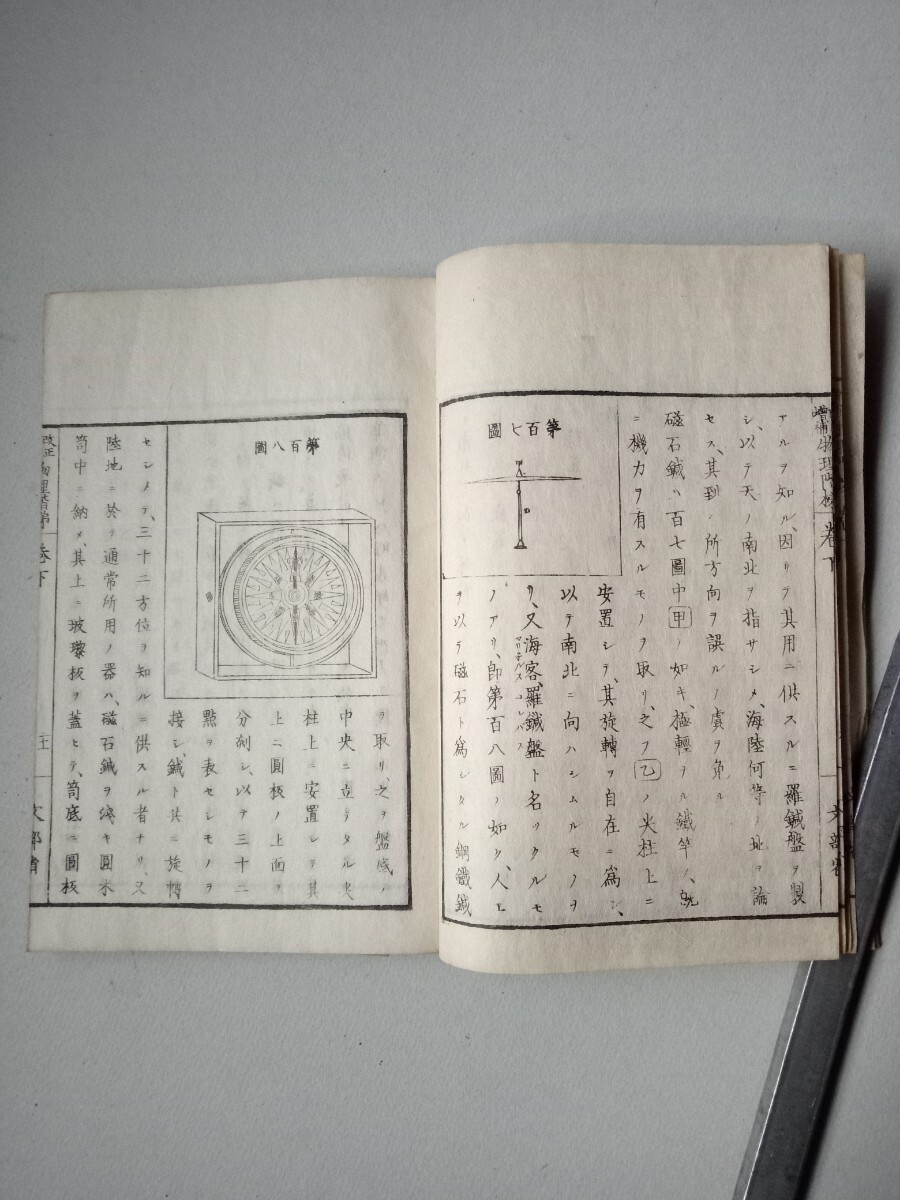 増補物理階梯 卷下
アルヲ知ル、因リテ其用ニ供スルニ羅鍼盤ヲ製
シ、以テ天ノ南北ヲ指サシメ、海陸何等ノ地ヲ論
セス、其到ル所方向ヲ誤ルノ虞ヲ免ル
磁石鍼ハ百七圖中甲ノ如キ、極輕キ鐵竿ノ、既
ニ機力ヲ有スルモノヲ取リ、之ヲ乙ノ尖柱上ニ
第百七圖
安置シテ、其旋轉ヲ自在ニ爲シ、
以テ南北ニ向ハシムルモノヲ
リ、又海客羅鍼盤ト名ツクルモ
マリネルスコンパス
ノアリ、即第百八圖ノ如ク、人工
ヲ以テ磁石ト爲シタル鋼鐵鍼
文部省
第百八圖
ヲ取リ、之ヲ盤底ノ
中央ニ立テタル尖
柱上ニ安置シテ其
上ニ圓板ノ上面ヲ
分剖シ、以テ三十二
點ヲ表セシモノヲ
接シ、鍼ト共ニ旋轉
セシメテ、三十二方位ヲ知ルニ供スル者ナリ、又
陸地ニ於テ通常所用ノ器ハ、磁石鍼ヲ淺キ圓木
筒中ニ納メ、其上ニ玻瓈板ヲ蓋ヒテ、筒底ニ圓板
改正物理階梯 卷下
文部省